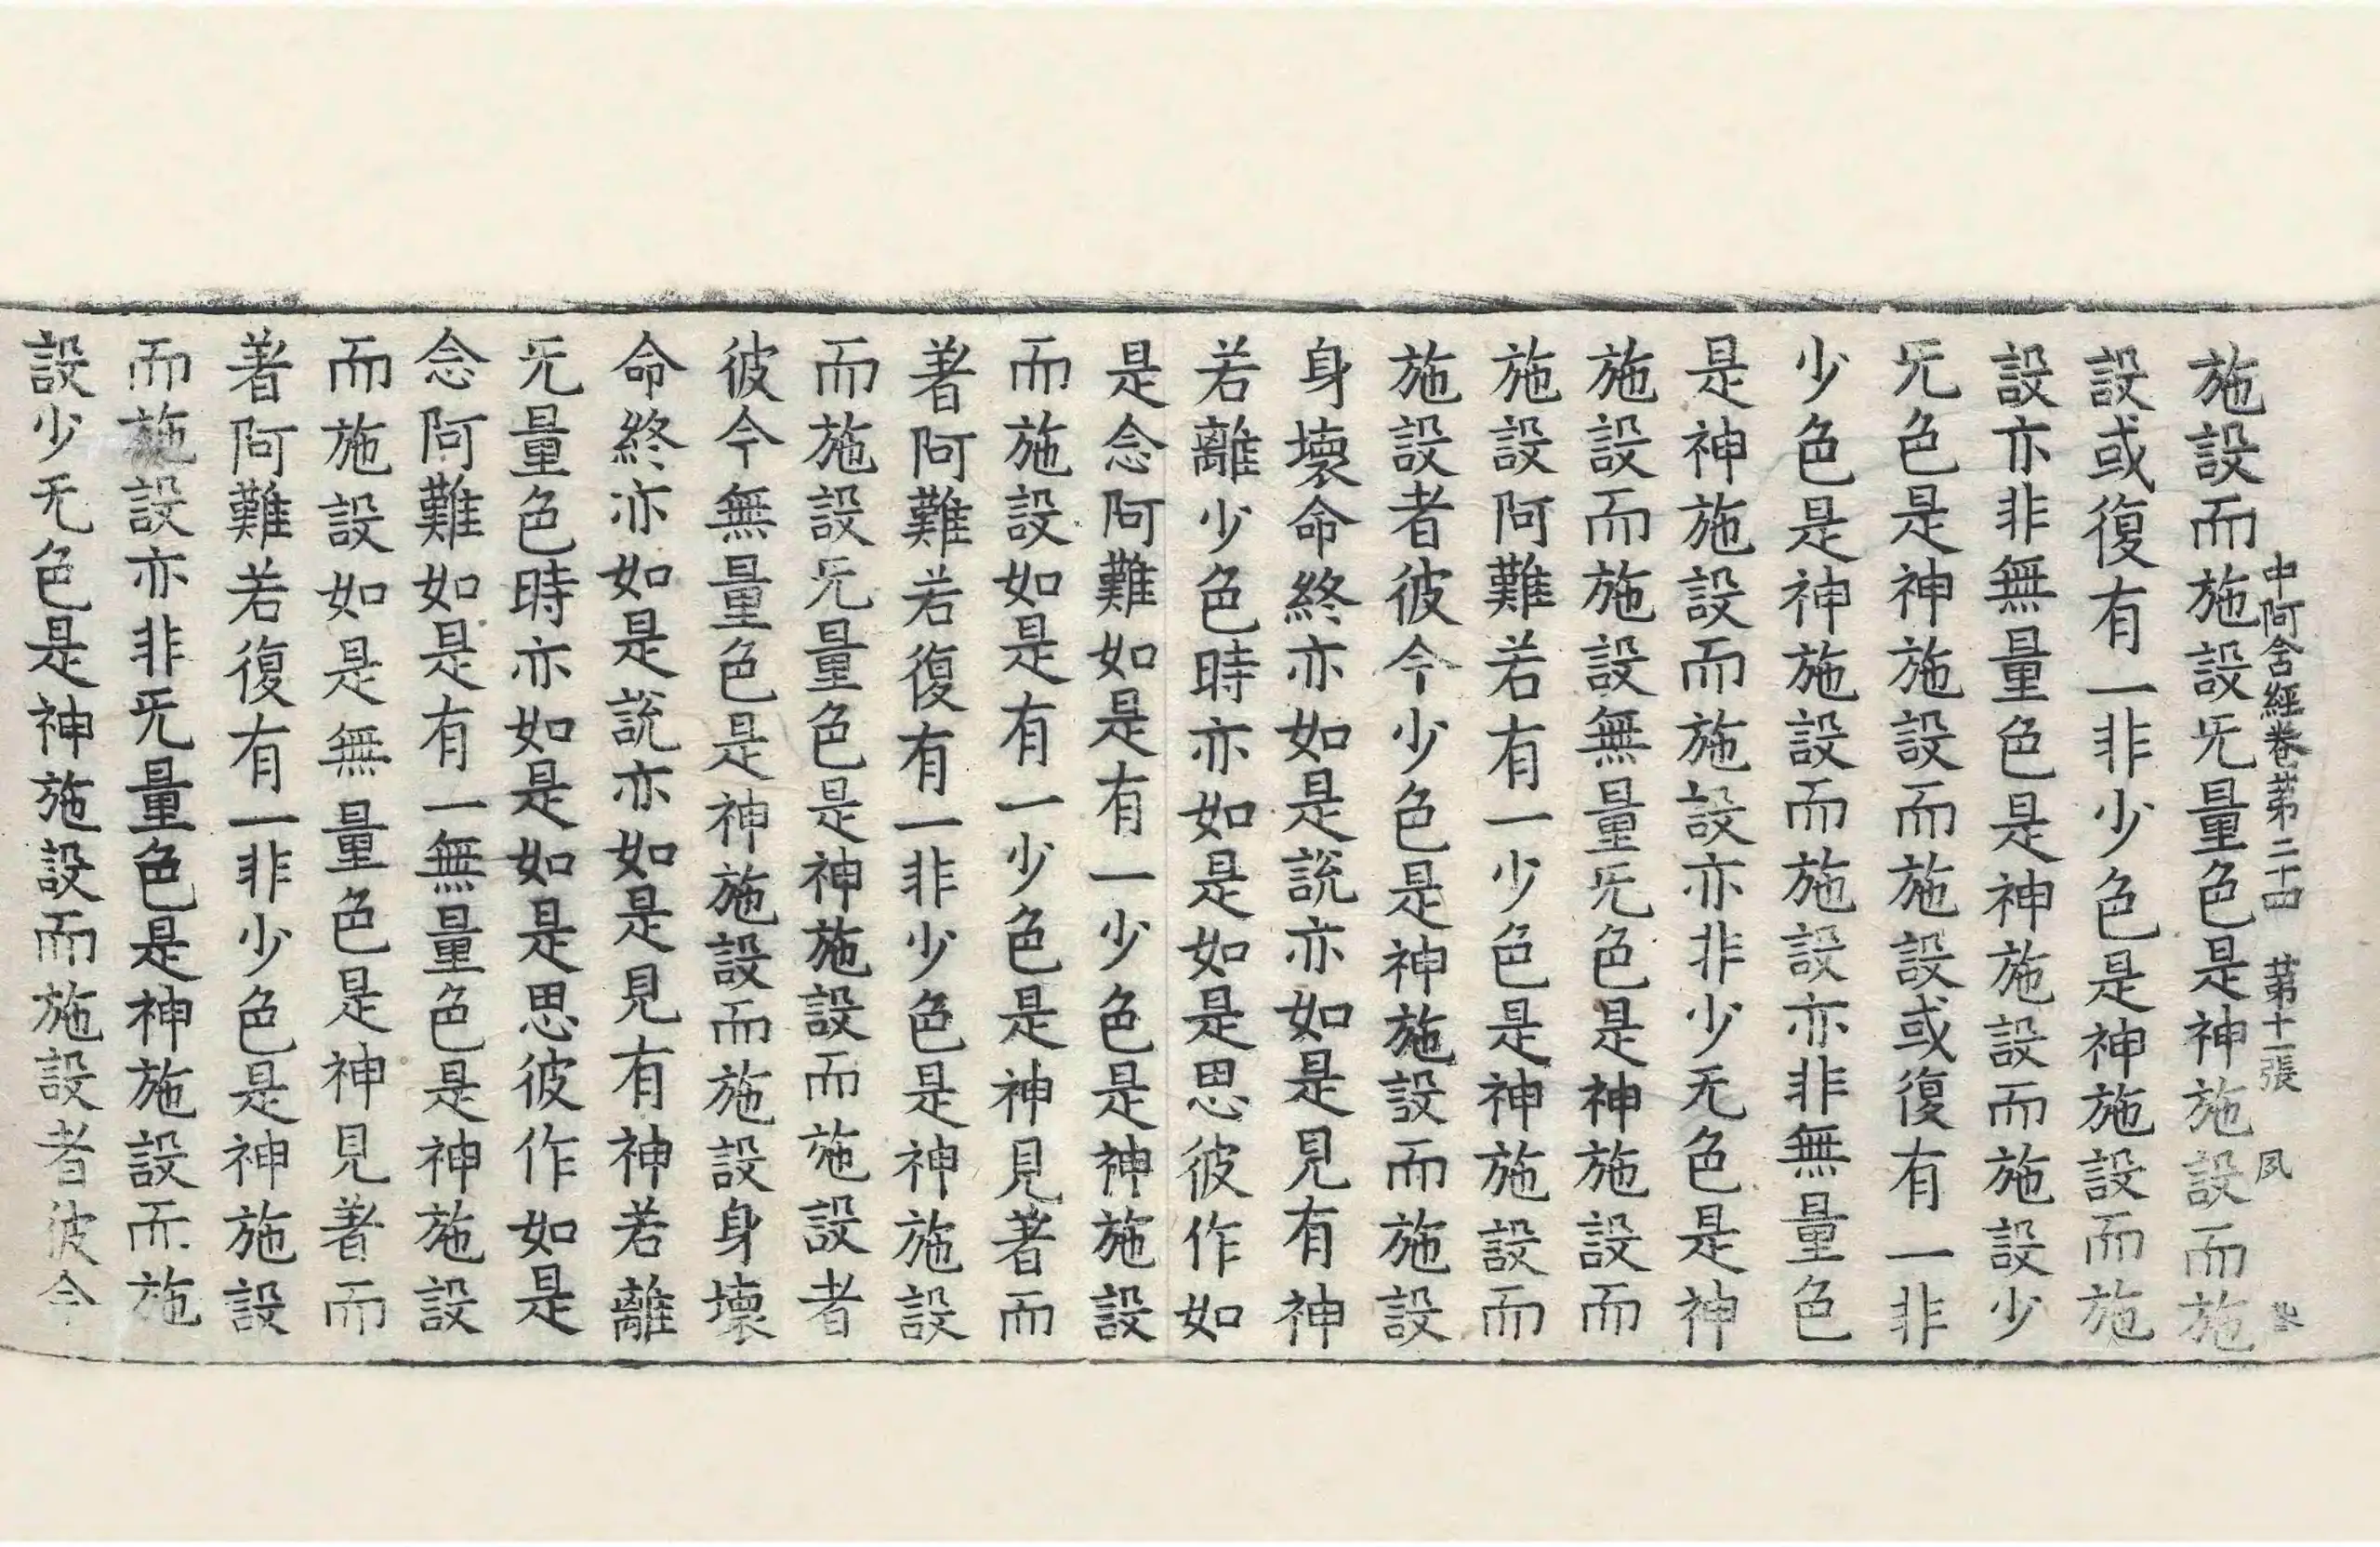 中阿含經卷第二十四　第十一張　夙
施設而施設旡量色是神施設而施
設或復有一非少色是神施設而施
設亦非無量色是神施設而施設少
旡色是神施設而施設或復有一非
少色是神施設而施設亦非無量色
是神施設而施設亦非少无色是神
施設而施設無量旡色是神施設而
施設阿難若有一少色是神施設而
施設者彼今少色是神施設而施設
身壞命終亦如是說亦如是見有神
若離少色時亦如是如是思彼作如
是念阿難如是有一少色是神施設
而施設如是有一少色是神見著而
著阿難若復有一非少色是神施設
而施設旡量色是神施設而施設者
彼今無量色是神施設而施設身壞
命終亦如是說亦如是見有神若離
旡量色時亦如是如是思彼作如是
念阿難如是有一無量色是神施設
而施設如是無量色是神見著而
著阿難若復有一非少色是神施設
而施設亦非旡量色是神施設而施
設少无色是神施設而施設者彼今